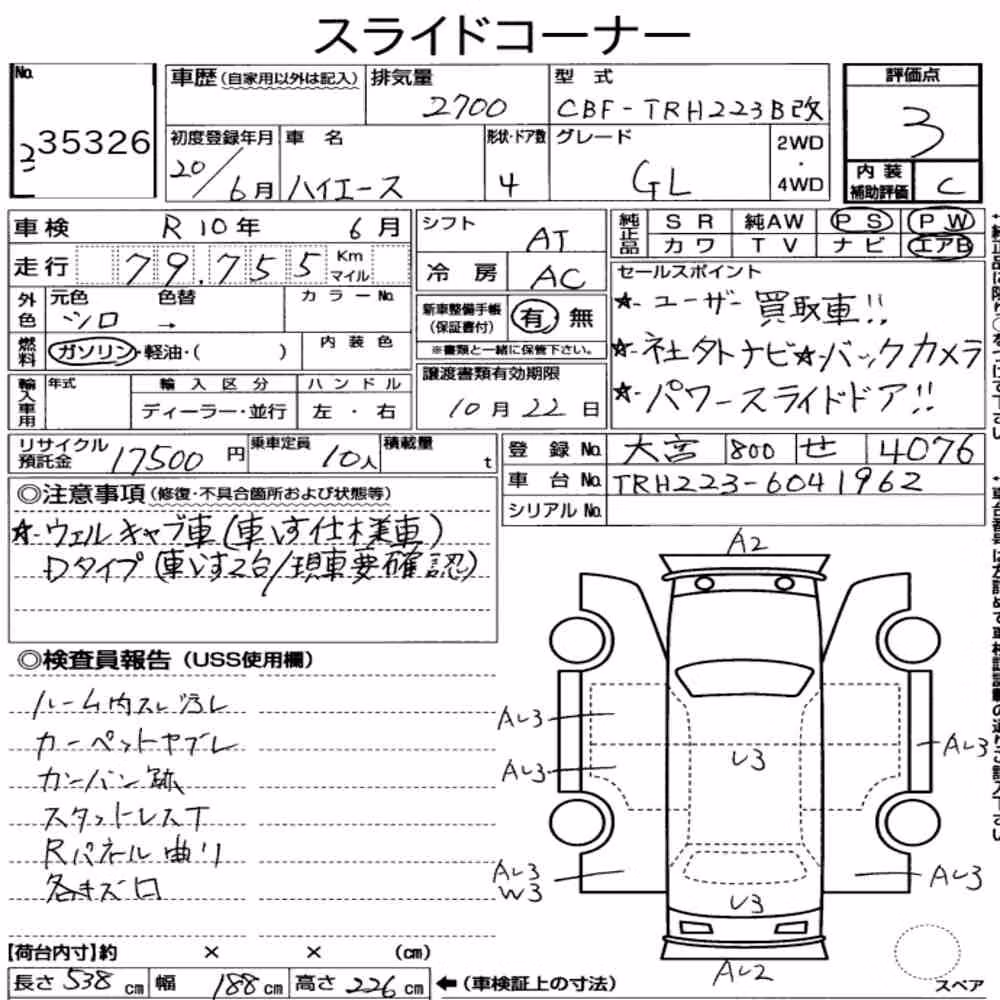 スライドコーナー
No.
35326
車歴(自家用以外は記入)
排気量
2700
型式
CBF-TRH223B改
評価点
3
初度登録年月
20/6月
車名
ハイエース
形状・ドア数
4
グレード
GL
2WD
・
4WD
内装
補助評価
C
車検 R10年 6月
走行 79,755 Km
マイル
シフト AT
冷房 AC
純正品
SR 純AW PS PW
カワ TV ナビ エアB
外色
元色 色替
シロ →
カラーNo.
燃料
ガソリン・軽油・( )
内装色
新車整備手帳
(保証書付)
有 無
※書類と一緒に保管下さい。
セールスポイント
☆ユーザー買取車!!
☆社外ナビ☆バックカメラ
☆パワースライドドア!!
輸入車用
年式
輸入区分
ハンドル
ディーラー・並行
左・右
譲渡書類有効期限
10月22日
リサイクル
預託金 17500円
乗車定員 10人
積載量 t
登録No. 大宮 800 せ 4076
車台No. TRH223-6041962
シリアルNo.
◎注意事項(修復・不具合箇所および状態等)
☆ウェルキャブ車(車いす仕様車)
Dタイプ(車いす2台/現車要確認)
◎検査員報告(USS使用欄)
ルーム内スレ汚レ
カーペットヤブレ
カンバン跡
スタットレスT
Rパネル曲リ
各キズ凹
A2
Aレ3
Aレ3
レ3
Aレ3
Aレ3
W3
レ3
Aレ3
Aレ2
スペア
【荷台内寸】約 × × (cm)
長さ 538 cm 幅 188 cm 高さ 226 cm ←(車検証上の寸法)